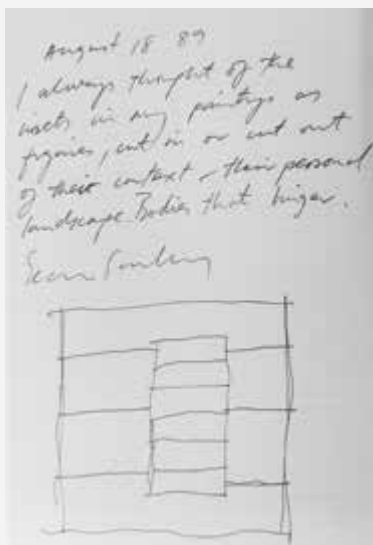 August 18 89
I always thought of the
insets in my paintings as
figures, cut in or cut out
of their context – their personal
landscape Bodies that linger.
Sean Scully